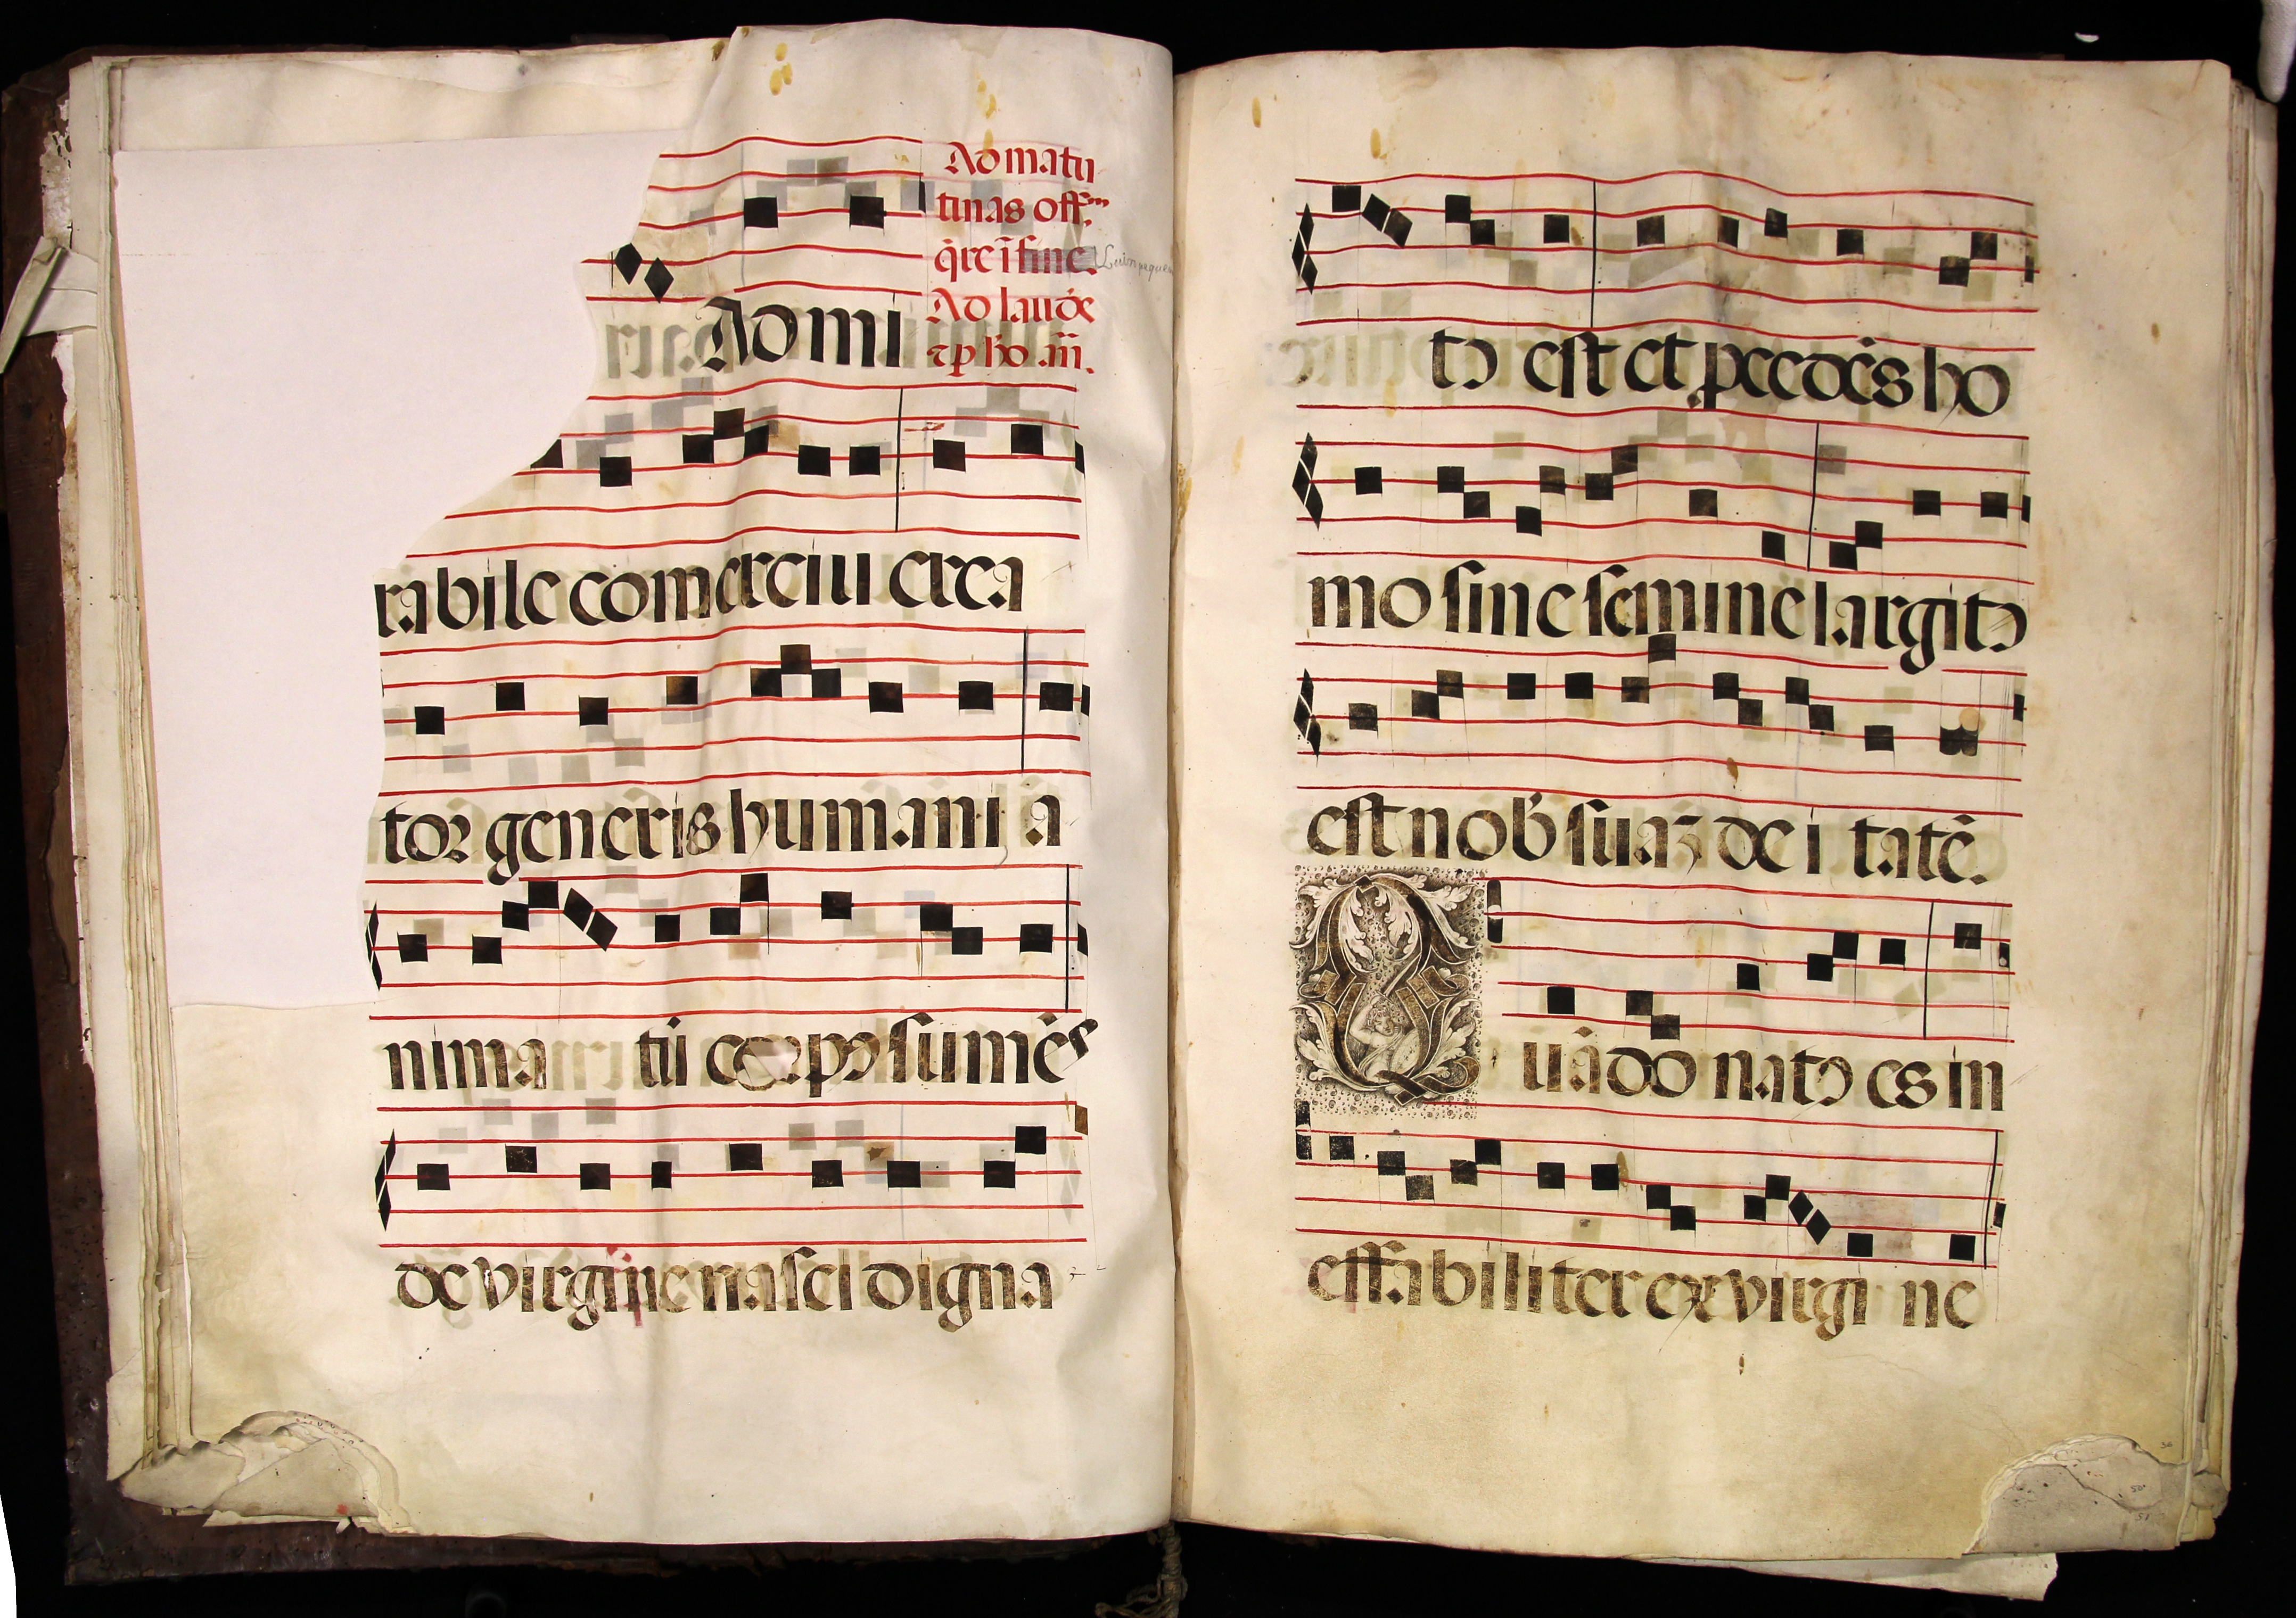 Ad matu
tinas off.m
q̄re ī fine.
Ad laud̛
Ad mi
rabile comerciu crea
tor generis humani a
nima tū corpꝯ sumēs
de virgine nasci digna
tꝯ est et p̱cedēs ho
mo sine semine largitꝯ
est nob̄ suaʒ de i tatē.
Quādo natꝯ es in
effabiliter ex virgi ne